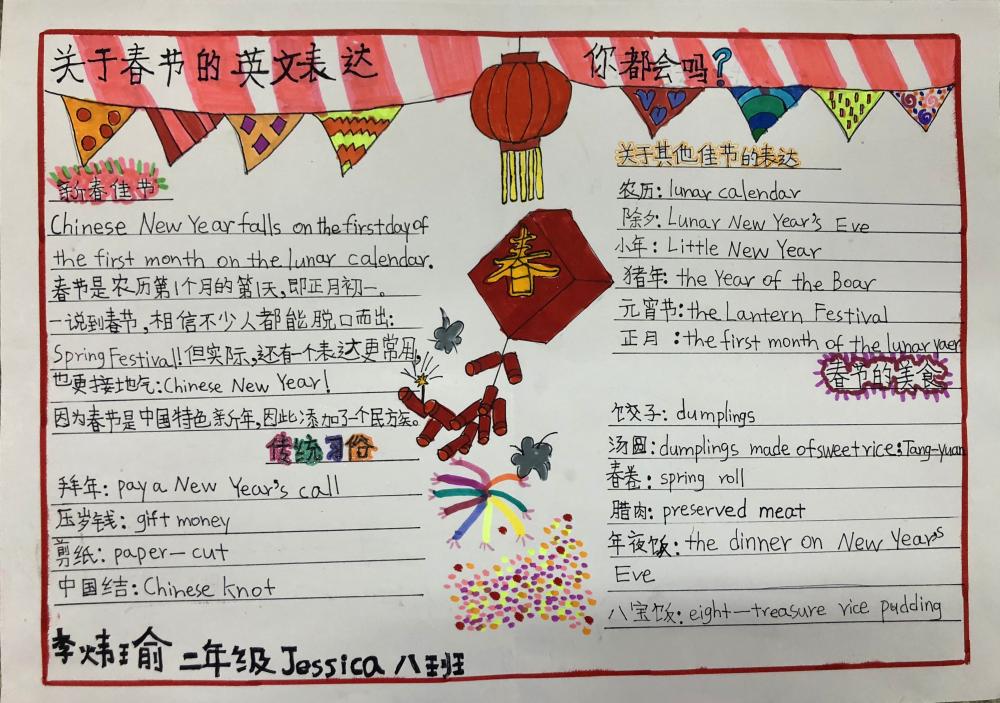 关于春节的英文表达
你都会吗?
新春佳节
Chinese New Year falls on the first day of
the first month on the lunar calendar.
春节是农历第1个月的第1天,即正月初一。
一说到春节,相信不少人都能脱口而出:
Spring Festival!但实际,还有一个表达更常用,
也更接地气:Chinese New Year!
因为春节是中国特色新年,因此添加了个民方族。
传统习俗
拜年: pay a New Year's call
压岁钱: gift money
剪纸: paper-cut
中国结: Chinese knot
春
关于其他佳节的表达
农历: lunar calendar
除夕: Lunar New Year's Eve
小年: Little New Year
猪年: the Year of the Boar
元宵节: the Lantern Festival
正月: the first month of the lunar yaer
春节的美食
饺子: dumplings
汤圆: dumplings made of sweet rice: Tang-yuan
春卷: spring roll
腊肉: preserved meat
年夜饭: the dinner on New Year's
Eve
八宝饭: eight-treasure rice pudding
李炜瑜 二年级 Jessica 八班